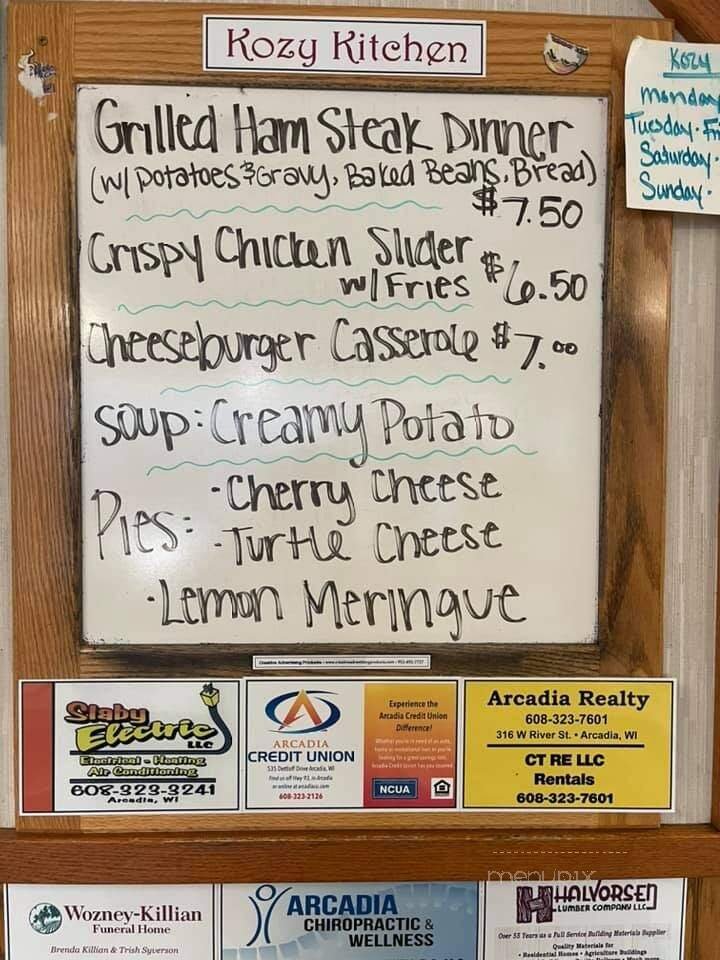 Kozy Kitchen
Grilled Ham Steak Dinner
(w/ Potatoes & Gravy, Baked Beans, Bread)
$7.50
Crispy Chicken Slider
w/ Fries $6.50
Cheeseburger Casserole $7.00
Soup: Creamy Potato
Pies: • Cherry Cheese
• Turtle Cheese
• Lemon Meringue
Kozy
monday
Tuesday - Fri
Saturday -
Sunday -
Slaby
Electric
LLC
Electrical - Heating
Air Conditioning
608-323-3241
Arcadia, WI
ARCADIA
CREDIT UNION
535 Dettloff Drive Arcadia, WI
Find us off Hwy 93, in Arcadia
or online at arcadiacu.com
608-323-2126
Experience the
Arcadia Credit Union
Difference!
NCUA
Arcadia Realty
608-323-7601
316 W River St. • Arcadia, WI
CT RE LLC
Rentals
608-323-7601
menupix
Wozney-Killian
Funeral Home
Brenda Killian & Trish Syverson
ARCADIA
CHIROPRACTIC &
WELLNESS
HALVORSEN
LUMBER COMPANY LLC
Over 55 Years as a Full Service Building Materials Supplier
Quality Materials for
• Residential Homes • Agriculture Buildings